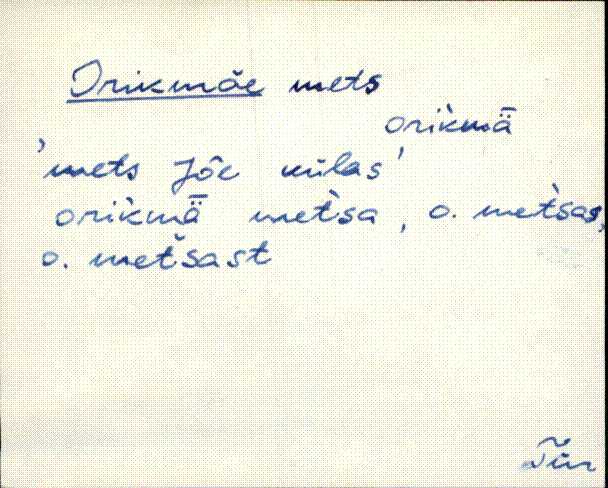 Orikmäe mets
orìkmǟ
'mets Jõe külas'
orìkmǟ metsa, o. metsas,
o. metsast
Tür